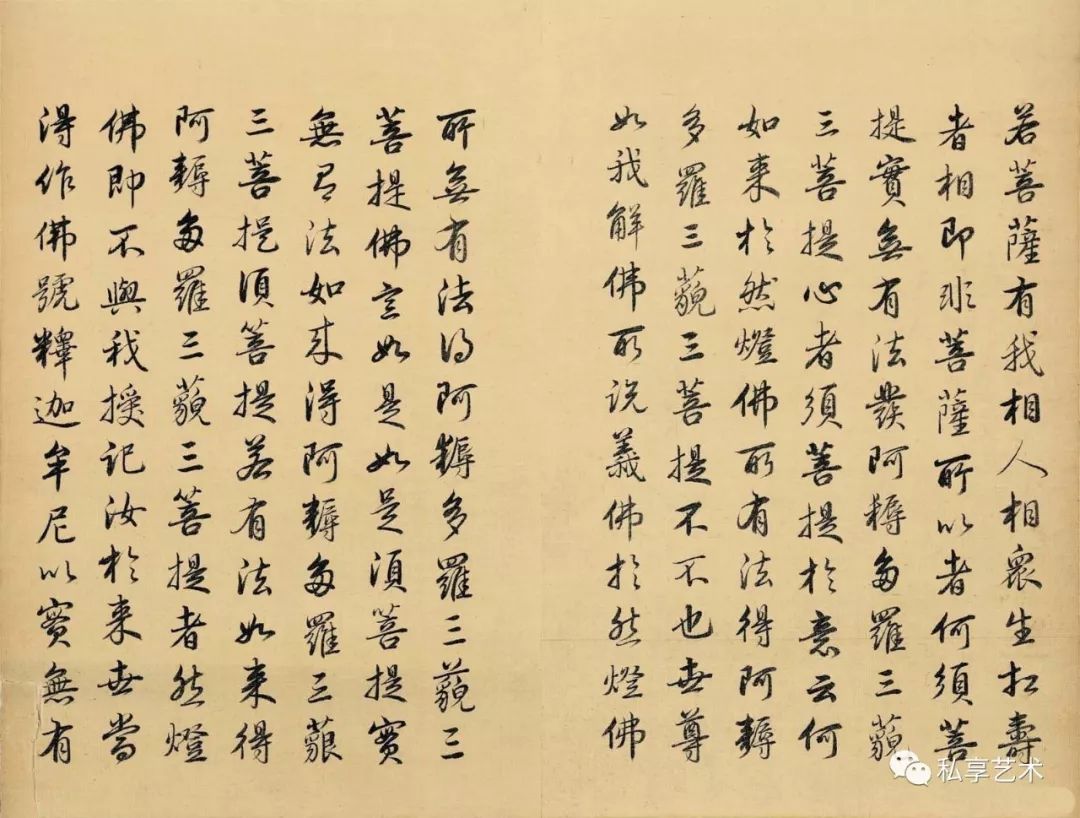 若菩薩有我相人相衆生相壽
者相即非菩薩所以者何須菩
提實無有法發阿耨多羅三藐
三菩提心者須菩提於意云何
如來於然燈佛所有法得阿耨
多羅三藐三菩提不不也世尊
如我解佛所説義佛於然燈佛
所無有法得阿耨多羅三藐三
菩提佛言如是如是須菩提實
無有法如來得阿耨多羅三藐
三菩提須菩提若有法如來得
阿耨多羅三藐三菩提者然燈
佛即不與我授記汝於來世當
得作佛號釋迦牟尼以實無有
私享艺术